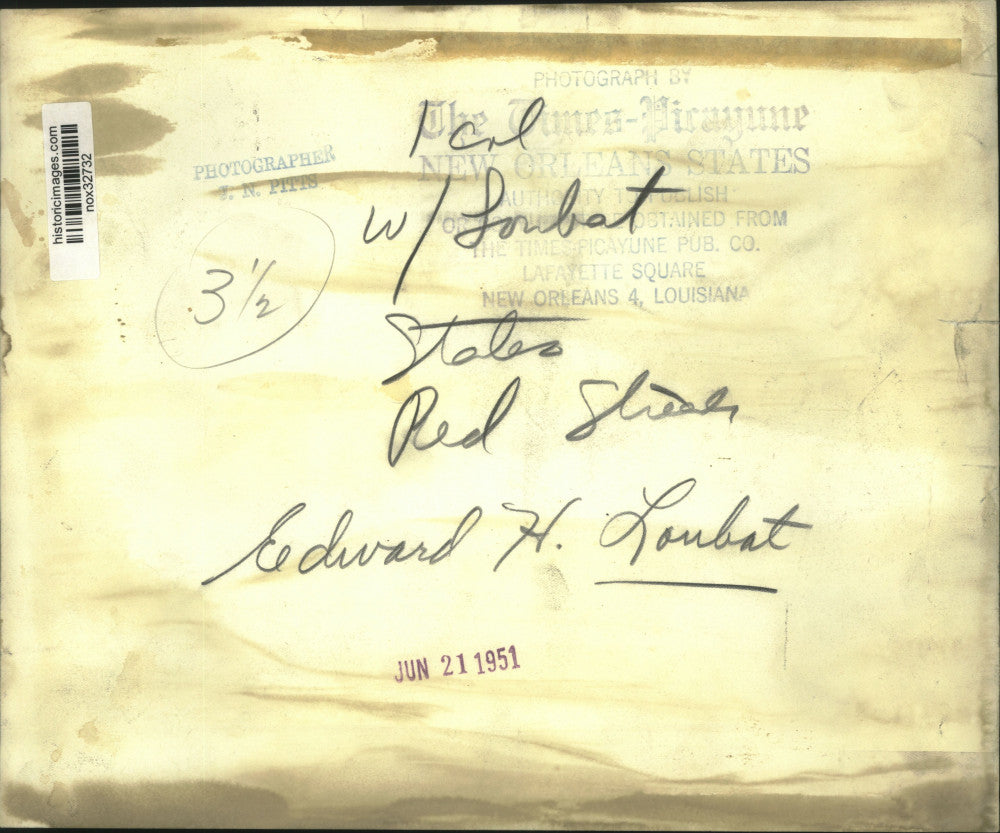 PHOTOGRAPH BY
The Times-Picayune
NEW ORLEANS STATES
AUTHORITY TO PUBLISH
OR OBTAINED FROM
THE TIMES-PICAYUNE PUB. CO.
LAFAYETTE SQUARE
NEW ORLEANS 4, LOUISIANA
historicimages.com
nox32732
PHOTOGRAPHER
J. N. PITTS
1 col
w/ Loubat
3 1/2
States
Red Streak
Edward H. Loubat
JUN 21 1951